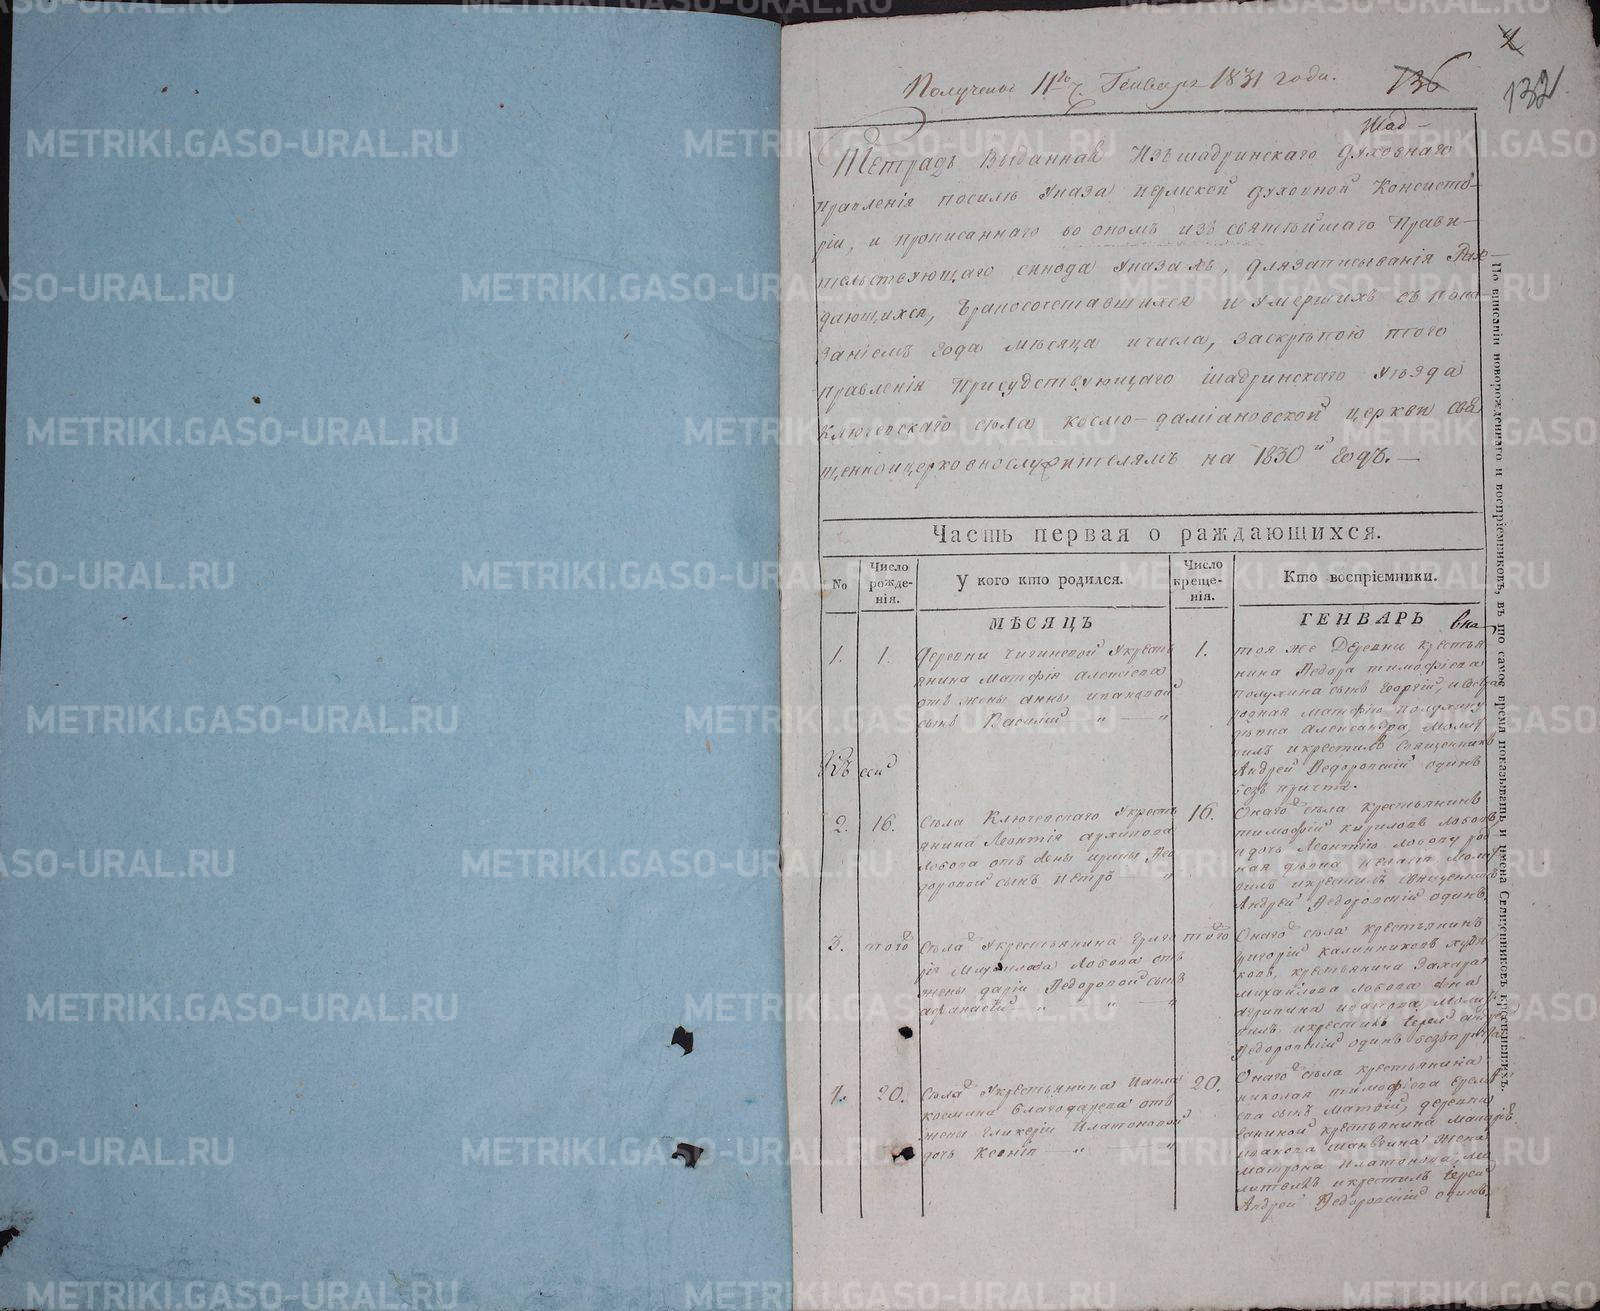 Получено 11го Генваря 1831 года.
136
132
Шад-
Тетрадь Выданная Изъ шадринскаго духовнаго
правленія посилѣ Указа пермской духовной Консисто-
ріи, и прописаннаго во ономъ изъ святѣйшаго Прави-
тельствующаго синода Указахъ, для записыванія Раж-
дающихся, бракосочетавшихся и умершихъ съ пока-
заніемъ года мѣсяца и числа, заскрѣпою того
правленія Присудствующаго шадринскаго уѣзда
Ключевскаго села космо-даміановской церкви свя-
щенноцерковнослужителямъ на 1830й годъ.
Часть первая о раждающихся.
No
Число рожде-нія.
У кого кто родился.
Число креще-нія.
Кто воспріемники.
МѢСЯЦЪ
ГЕНВАРЬ
1.
1.
Деревни чигиневой у кресть
янина Матфія алексіева
отъ жены анны ивановой
сынъ Василій
1.
тоя же Деревни крестья
нина Ѳедора тимофіева
полухина сынъ Георгій,
родная матфію полухину
дѣвка Александра, Молит
вилъ и крестилъ Священникъ
Андрей Ѳедоровскій одинъ
безъ причта.
Къ сей
2.
16.
Села Ключевскаго у кресть
янина Леонтія архипова
Лобова отъ жены ирины Ѳео
доровой сынъ Петръ
16.
Онаго села крестьянинъ
тимофій кириловъ Лобовъ
и дочь Леонтію лобову род
ная дѣвка пелагія Моли
вилъ и крестилъ Священникъ
Андрей Ѳедоровскій одинъ.
3.
того
Села у крестьянина григо
рія Михаилова Лобова отъ
жены даріи Ѳедоровой сынъ
афанасій
того
Онаго села крестьянинъ
григорій калинниковъ
ковъ, крестьянина Захара
михайлова лобова жена
агрипина иванова Моли
вилъ и крестилъ іерей андрей
Ѳедоровскій одинъ безъ причта
4.
20.
Села у крестьянина Павла
космина благодарева отъ
жены гликеріи Платоновой
дочь Ксенія
20.
Онаго села крестьянина
николая тимофіева
ева сынъ матвій, деревни
ваниной крестьянина макарія
иванова жена
матрона Платонова, мо
литвилъ и крестилъ іерей
Андрей Ѳедоровскій одинъ.
По внесеніи новорожденнаго и воспріемниковъ, въ то самое время показывать и имена Священниковъ крестившихъ.
METRIKI.GASO-URAL.RU